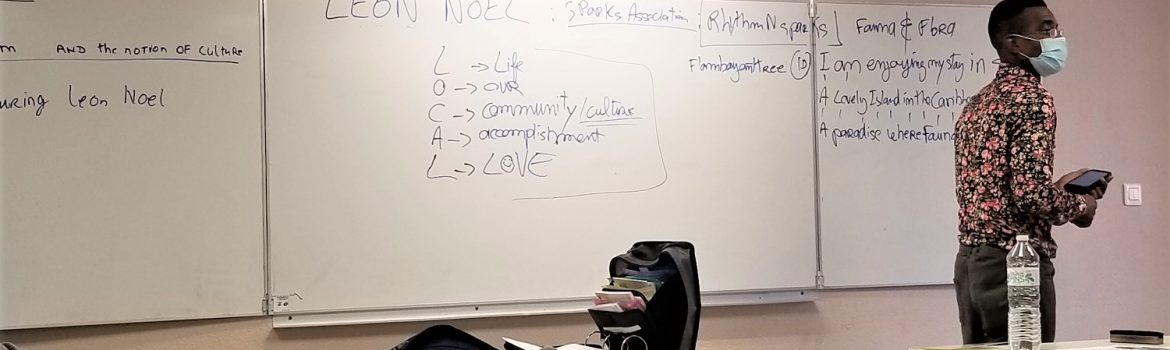 AND the notion OF culture
uring Leon Noel
LEON NOEL : SPARKS Association : RhythmNsparks
L -> Life
O -> OUR
C -> community/culture
A -> accomplishment
L -> LOVE
Fauna & Flora
Flamboyant tree (ID)
I am enjoying my stay in
A Lovely Island in the Caribb
A paradise where Faun